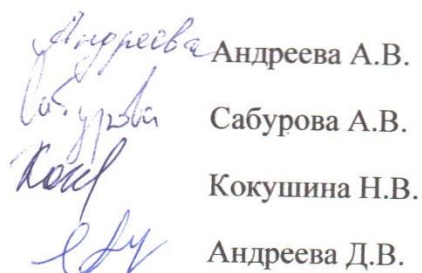 Андреева Андреева А.В.
Сабурова Сабурова А.В.
Кок Кокушина Н.В.
Андреева Д.В.